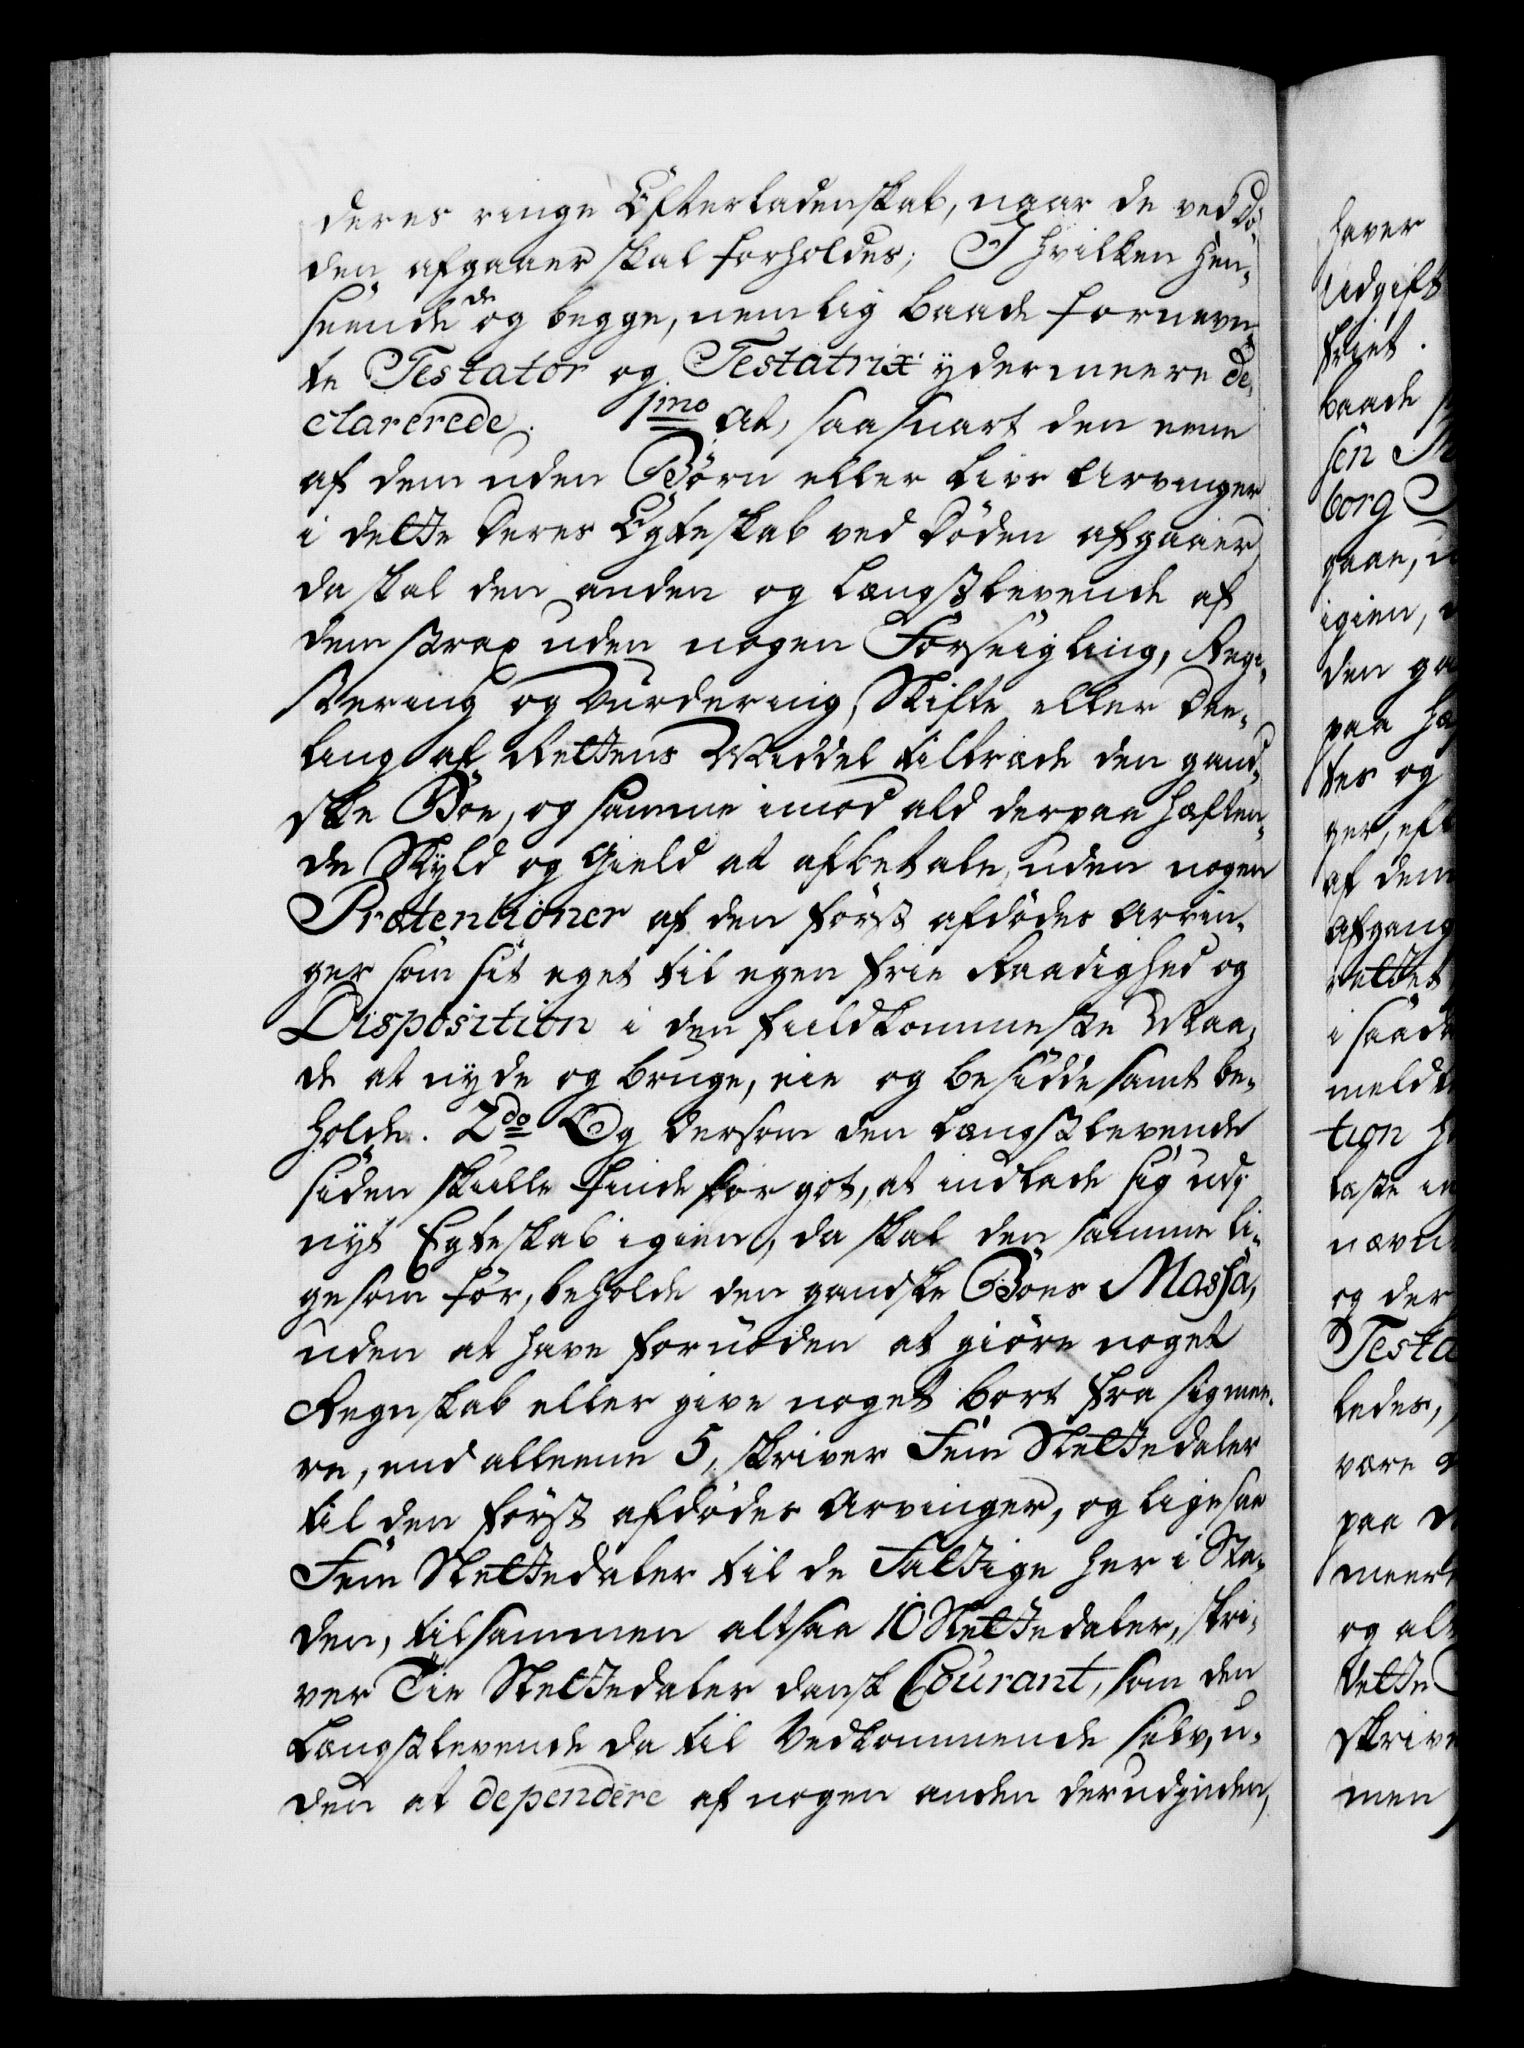 deres ringe Efterladenskab, naar de ved Dø-
den afgaaer skal forholdes; I hvilken Hen-
seende de og begge, nemlig baade fornevn-
te Testator og Testatrix ydermeere de-
clarerede. 1mo At, saa snart den eene
af dem uden Børn eller Livs Arvinger
i dette deres Egteskab ved Døden afgaaer,
da skal den anden og længstlevende af
dem strax uden nogen Forseigling, Regi-
stering og Vurdering, Skifte eller Dee-
ling af Rettens Middel tiltræde den gand-
ske Boe, og samme imod ald derpaa hæften-
de Skyld og Gield at afbetale, uden nogen
Prætentioner af den først afdødes Arvin-
ger som sit eget til egen frie Raadighed og
Disposition i den fuldkommeste Maa-
de at nyde og bruge, eie og besidde samt be-
holde. 2do Og dersom den længstlevende
siden skulle finde for got, at indlade sig udj
nyt Egteskab igien, da skal den samme li-
gesom før, beholde den gandske Boes Massa,
uden at have fornøden at giøre noget
Regnskab eller give noget bort fra sig mee-
re, end alleene 5, skriver Fem Slettedaler
til den først afdødes Arvinger, og ligesaa
Fem Slettedaler til de Fattige her i Sta-
den, tilsammen altsaa 10 Slettedaler, skri-
ver Tie Slettedaler dansk Courant, som den
længstlevende da til Vedkommende selv, u-
den at dependere af nogen anden derudjnden,
haver
Udgift
friet.
baade
sen
borg
gaae,
igien,
den
paa
tes og
ger,
af dem
Afgang
rettet
i saad
meld
tion
læste
nævn
og der
Testa
ledes,
være
paa
meer
og al
dette
skriv
men